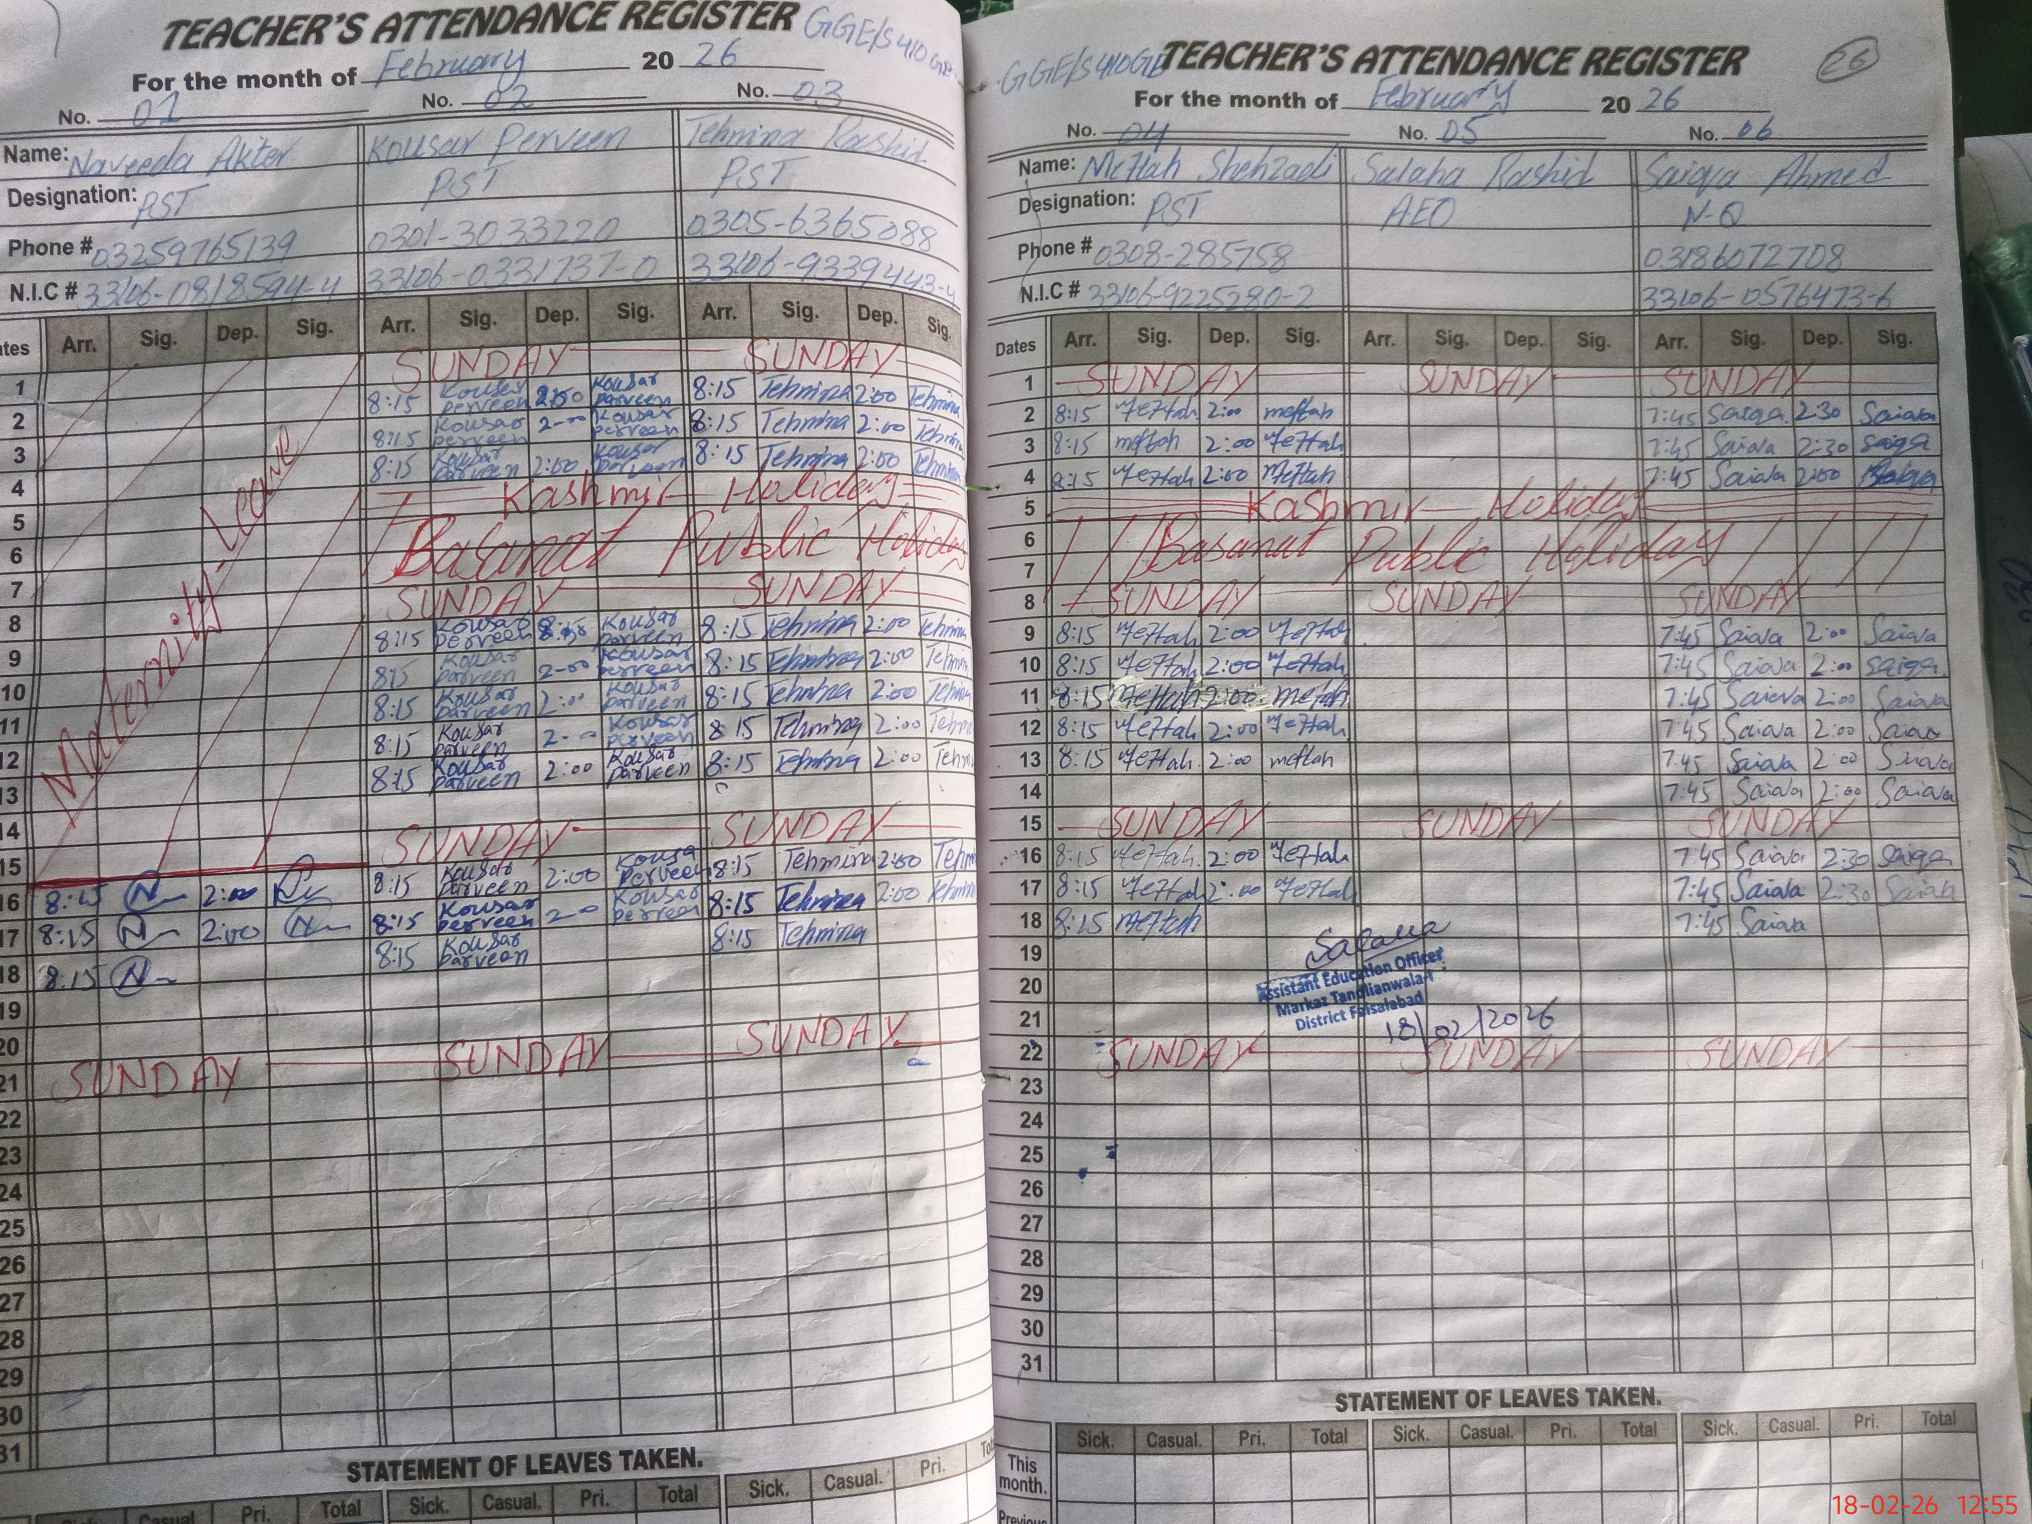 TEACHER'S ATTENDANCE REGISTER GGE/S 410 GB
For the month of February 20 26
No. 01 No. 02 No. 03
Name: Naveeda Akter Kousar Perveen Tehmina Rashid
Designation: PST PST PST
Phone # 03259765139 0301-3033220 0305-6365088
N.I.C # 33106-0818594-4 33106-0331737-0 33106-9339443-4
Dates Arr. Sig. Dep. Sig. Arr. Sig. Dep. Sig. Arr. Sig. Dep. Sig.
Maternity Leave
1 SUNDAY SUNDAY
2 8:15 Kousar perveen 2:00 Kousar perveen 8:15 Tehmina 2:00 Tehmina
3 8:15 Kousar perveen 2-00 Kousar perveen 8:15 Tehmina 2:00 Tehmina
4 8:15 Kousar parveen 2:00 Kousar parveen 8:15 Tehmina 2:00 Tehmina
5 Kashmir Holiday
6 Basanat Public Holiday
7
8 SUNDAY SUNDAY
9 8:15 Kousar perveen Kousar parveen 8:15 Tehmina 2:00 Tehmina
10 8:15 Kousar parveen 2-00 Kousar parveen 8:15 Tehmina 2:00 Tehmina
11 8:15 Kousar parveen 2:00 Kousar parveen 8:15 Tehmina 2:00 Tehmina
12 8:15 Kousar parveen 2-00 Kousar perveen 8:15 Tehmina 2:00 Tehmina
13 8:15 Kousar parveen 2:00 Kousar parveen 8:15 Tehmina 2:00 Tehmina
14
15 SUNDAY SUNDAY
16 8:15 2:00 8:15 Kousar parveen 2:00 Kousar perveen 8:15 Tehmina 2:00 Tehmina
17 8:15 2:00 8:15 Kousar perveen 2-00 Kousar perveen 8:15 Tehmina 2:00 Tehmina
18 8:15 8:15 Kousar parveen 8:15 Tehmina
19
20
21 SUNDAY SUNDAY SUNDAY
22
23
24
25
26
27
28
29
30
31
STATEMENT OF LEAVES TAKEN.
Sick. Casual. Pri. Total Sick. Casual. Pri. Total Sick. Casual. Pri. Total
GGE/S 410 GB TEACHER'S ATTENDANCE REGISTER 26
For the month of February 20 26
No. 04 No. 05 No. 06
Name: Meftah Shehzadi Salaha Rashid Saiqa Ahmed
Designation: PST AEO N-Q
Phone # 0303-285758 03186072708
N.I.C # 33106-9225280-2 33106-0576473-6
Dates Arr. Sig. Dep. Sig. Arr. Sig. Dep. Sig. Arr. Sig. Dep. Sig.
1 SUNDAY SUNDAY SUNDAY
2 8:15 Meftah 2:00 meftah 7:45 Saiqa 2:30 Saiqa
3 8:15 meftah 2:00 Meftah 7:45 Saiqa 2:30 Saiqa
4 8:15 Meftah 2:00 Meftah 7:45 Saiqa 2:00 Saiqa
5 Kashmir Holiday
6 Basanat Public Holiday
7
8 SUNDAY SUNDAY SUNDAY
9 8:15 Meftah 2:00 Meftah 7:45 Saiqa 2:00 Saiqa
10 8:15 Meftah 2:00 Meftah 7:45 Saiqa 2:00 Saiqa
11 8:15 Meftah 2:00 meftah 7:45 Saiqa 2:00 Saiqa
12 8:15 Meftah 2:00 Meftah 7:45 Saiqa 2:00 Saiqa
13 8:15 Meftah 2:00 meftah 7:45 Saiqa 2:00 Saiqa
14 7:45 Saiqa 2:00 Saiqa
15 SUNDAY SUNDAY SUNDAY
16 8:15 Meftah 2:00 Meftah 7:45 Saiqa 2:30 Saiqa
17 8:15 Meftah 2:00 Meftah 7:45 Saiqa 2:30 Saiqa
18 8:15 Meftah 7:45 Saiqa
19 Salaha
20 Assistant Education Officer
Markaz Tandlianwala-I
21 District Faisalabad
18/02/2026
22 SUNDAY SUNDAY SUNDAY
23
24
25
26
27
28
29
30
31
STATEMENT OF LEAVES TAKEN.
Sick. Casual. Pri. Total Sick. Casual. Pri. Total Sick. Casual. Pri. Total
This month.
Previous
18-02-26 12:55